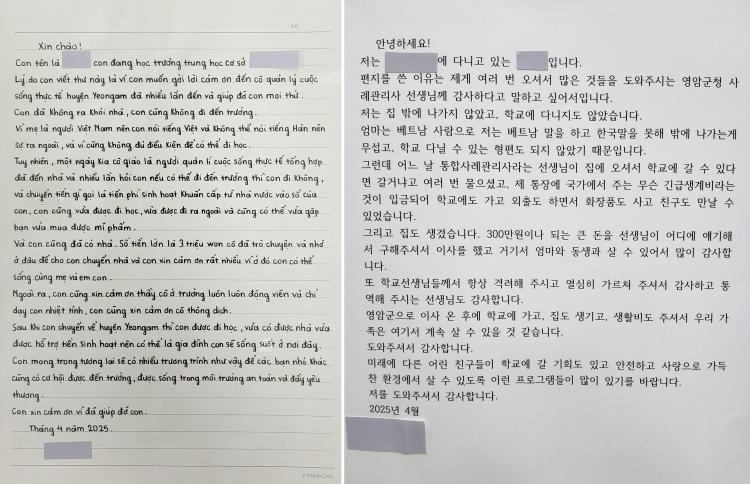 Xin chào!
Con tên là con đang học trường trung học cơ sở
Lý do con viết thư này là vì con muốn gửi lời cảm ơn đến cô quản lý cuộc
sống thực tế huyện Yeongam đã nhiều lần đến và giúp đỡ con mọi thứ.
Con đã Không ra Khỏi nhà, con cũng Không đi đến trường.
Vì mẹ là người Việt Nam nên con nói tiếng Việt và Không thể nói tiếng Hàn nên
sợ ra ngoài, và vì cũng Không đủ điều Kiện để có thể đi học.
Tuy nhiên, một ngày Kia cô giáo là người quản lí cuộc sống thực tế tổng hợp
đã đến nhà và nhiều lần hỏi con nếu có thể đi đến trường thì con đi Không,
và chuyển tiền gì gọi là tiền phí sinh hoạt Khuẩn cấp từ nhà nước vào sổ của
con, con cũng vừa được đi học, vừa được đi ra ngoài và cũng có thể vừa gặp
bạn vừa mua được mĩ phẩm.
Và con cũng đã có nhà. Số tiền lớn là 3 triệu won cô đã trò chuyện và nhờ
ở đâu để cho con chuyển nhà và con xin cảm ơn rất nhiều vì ở đó con có thể
sống cùng mẹ và em con.
Ngoài ra, con cũng xin cảm ơn thầy cô ở trường luôn luôn động viên và chỉ
dạy con nhiệt tình, con cũng xin cảm ơn cô thông dịch.
Sau Khi con chuyển về huyện Yeongam thì con được đi học, vừa có được nhà vừa
được hỗ trợ tiền sinh hoạt nên có thể là gia đình con sẽ sống suốt ở nơi đây.
Con mong trong tương lai sẽ có nhiều trương trình như vậy để các bạn nhỏ Khác
cũng có cơ hội được đến trường, được sống trong môi trường an toàn và đầy yêu
thương.
Con xin cảm ơn vì đã giúp đỡ con.
Tháng 4 năm 2025.
안녕하세요!
저는 에 다니고 있는 입니다.
편지를 쓴 이유는 제게 여러 번 오셔서 많은 것들을 도와주시는 영암군청 사
례관리사 선생님께 감사하다고 말하고 싶어서입니다.
저는 집 밖에 나가지 않았고, 학교에 다니지도 않았습니다.
엄마는 베트남 사람으로 저는 베트남 말을 하고 한국말을 못해 밖에 나가는게
무섭고, 학교 다닐 수 있는 형편도 되지 않았기 때문입니다.
그런데 어느 날 통합사례관리사라는 선생님이 집에 오셔서 학교에 갈 수 있다
면 갈거냐고 여러 번 물으셨고, 제 통장에 국가에서 주는 무슨 긴급생계비라는
것이 입금되어 학교에도 가고 외출도 하면서 화장품도 사고 친구도 만날 수
있었습니다.
그리고 집도 생겼습니다. 300만원이나 되는 큰 돈을 선생님이 어디에 얘기해
서 구해주셔서 이사를 했고 거기서 엄마와 동생과 살 수 있어서 많이 감사합
니다.
또 학교선생님들께서 항상 격려해 주시고 열심히 가르쳐 주셔서 감사하고 통
역해 주시는 선생님도 감사합니다.
영암군으로 이사 온 후에 학교에 가고, 집도 생기고, 생활비도 주셔서 우리 가
족은 여기서 계속 살 수 있을 것 같습니다.
도와주셔서 감사합니다.
미래에 다른 어린 친구들이 학교에 갈 기회도 있고 안전하고 사랑으로 가득
찬 환경에서 살 수 있도록 이런 프로그램들이 많이 있기를 바랍니다.
저를 도와주셔서 감사합니다.
2025년 4월